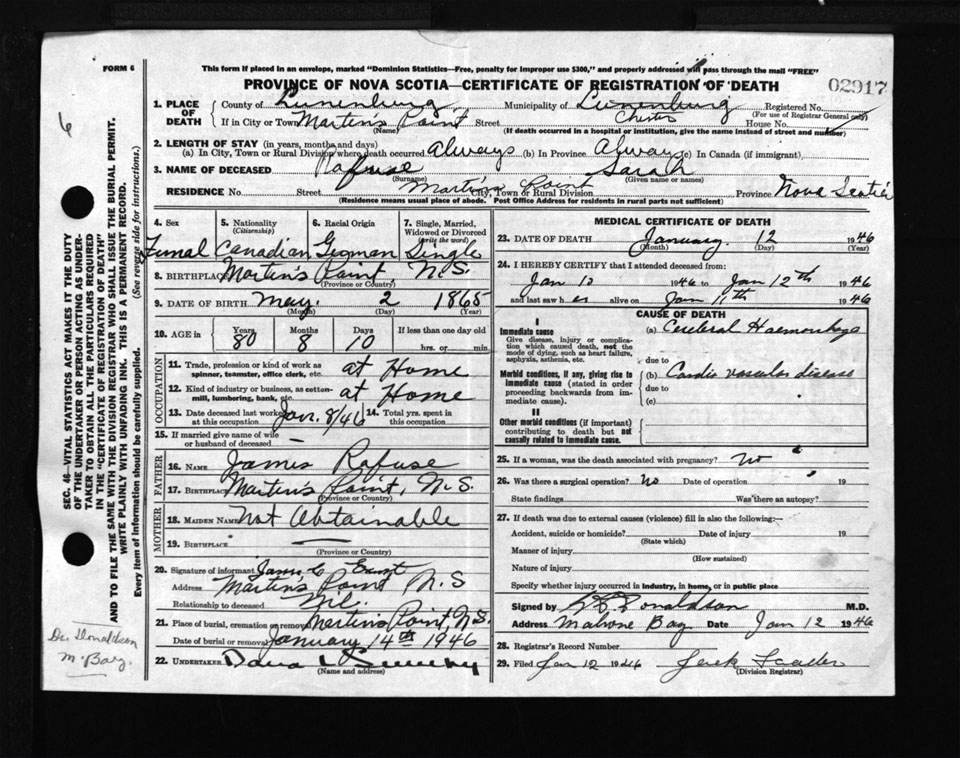 FORM 6
This form if placed in an envelope, marked "Dominion Statistics—Free, penalty for improper use $300," and properly addressed will pass through the mail "FREE"
PROVINCE OF NOVA SCOTIA—CERTIFICATE OF REGISTRATION OF DEATH
02917
6
1. PLACE OF DEATH
County of Lunenburg Municipality of Lunenburg Chester Registered No.
(For use of Registrar General only)
If in City or Town Martin's Point Street House No.
(Name) (If death occurred in a hospital or institution, give the name instead of street and number)
2. LENGTH OF STAY (in years, months and days)
(a) In City, Town or Rural Division where death occurred Always (b) In Province Always (c) In Canada (if immigrant)
3. NAME OF DECEASED Rafuse Sarah
(Surname) (Given name or names)
RESIDENCE No. Street Martin's Point Province Nova Scotia
City, Town or Rural Division
(Residence means usual place of abode. Post Office Address for residents in rural parts not sufficient)
4. Sex 5. Nationality (Citizenship) 6. Racial Origin 7. Single, Married, Widowed or Divorced (write the word)
Femal Canadian German Single
8. BIRTHPLACE Martin's Point N.S.
(Province or Country)
9. DATE OF BIRTH May 2 1865
(Month) (Day) (Year)
10. AGE in Years Months Days If less than one day old
80 8 10 hrs. or min.
OCCUPATION
11. Trade, profession or kind of work as spinner, teamster, office clerk, etc. at Home
12. Kind of industry or business, as cotton-mill, lumbering, bank, etc. at Home
13. Date deceased last worked at this occupation Jan. 8/46 14. Total yrs. spent in this occupation
15. If married give name of wife or husband of deceased —
FATHER
16. NAME James Rafuse
17. BIRTHPLACE Martin's Point, N.S.
(Province or Country)
MOTHER
18. MAIDEN NAME Not Obtainable
19. BIRTHPLACE —
(Province or Country)
20. Signature of informant James C Ernst
Address Martin's Point N.S
Relationship to deceased Nil.
21. Place of burial, cremation or removal Martins Point N.S.
Date of burial or removal January 14th 1946
22. UNDERTAKER
(Name and address)
MEDICAL CERTIFICATE OF DEATH
23. DATE OF DEATH January 12 1946
(Month) (Day) (Year)
24. I HEREBY CERTIFY that I attended deceased from:
Jan 10 1946 to Jan 12th 1946
and last saw her alive on Jan 11th 1946
CAUSE OF DEATH
I
Immediate cause
Give disease, injury or complication which caused death, not the mode of dying, such as heart failure, asphyxia, asthenia, etc.
(a) Cerebral Haemorrhage
due to
Morbid conditions, if any, giving rise to immediate cause (stated in order proceeding backwards from immediate cause).
(b) Cardio vascular disease
due to
(c)
II
Other morbid conditions (if important) contributing to death but not causally related to immediate cause.
25. If a woman, was the death associated with pregnancy? No
26. Was there a surgical operation? No Date of operation 19
State findings Was there an autopsy?
27. If death was due to external causes (violence) fill in also the following:—
Accident, suicide or homicide? Date of injury 19
(State which)
Manner of injury
(How sustained)
Nature of injury
Specify whether injury occurred in industry, in home, or in public place
Signed by Donaldson M.D.
Address Mahone Bay Date Jan 12 1946
28. Registrar's Record Number
29. Filed Jan 12 1946
(Division Registrar)
SEC. 46—VITAL STATISTICS ACT MAKES IT THE DUTY
OF THE UNDERTAKER OR PERSON ACTING AS UNDER-
TAKER TO OBTAIN ALL THE PARTICULARS REQUIRED
IN THE "CERTIFICATE OF REGISTRATION OF DEATH"
AND TO FILE THE SAME WITH THE DIVISION REGISTRAR WHO SHALL ISSUE THE BURIAL PERMIT.
WRITE PLAINLY WITH UNFADING INK. THIS IS A PERMANENT RECORD.
Every item of information should be carefully supplied. (See reverse side for instructions.)
Dr. Donaldson
M. Bay.